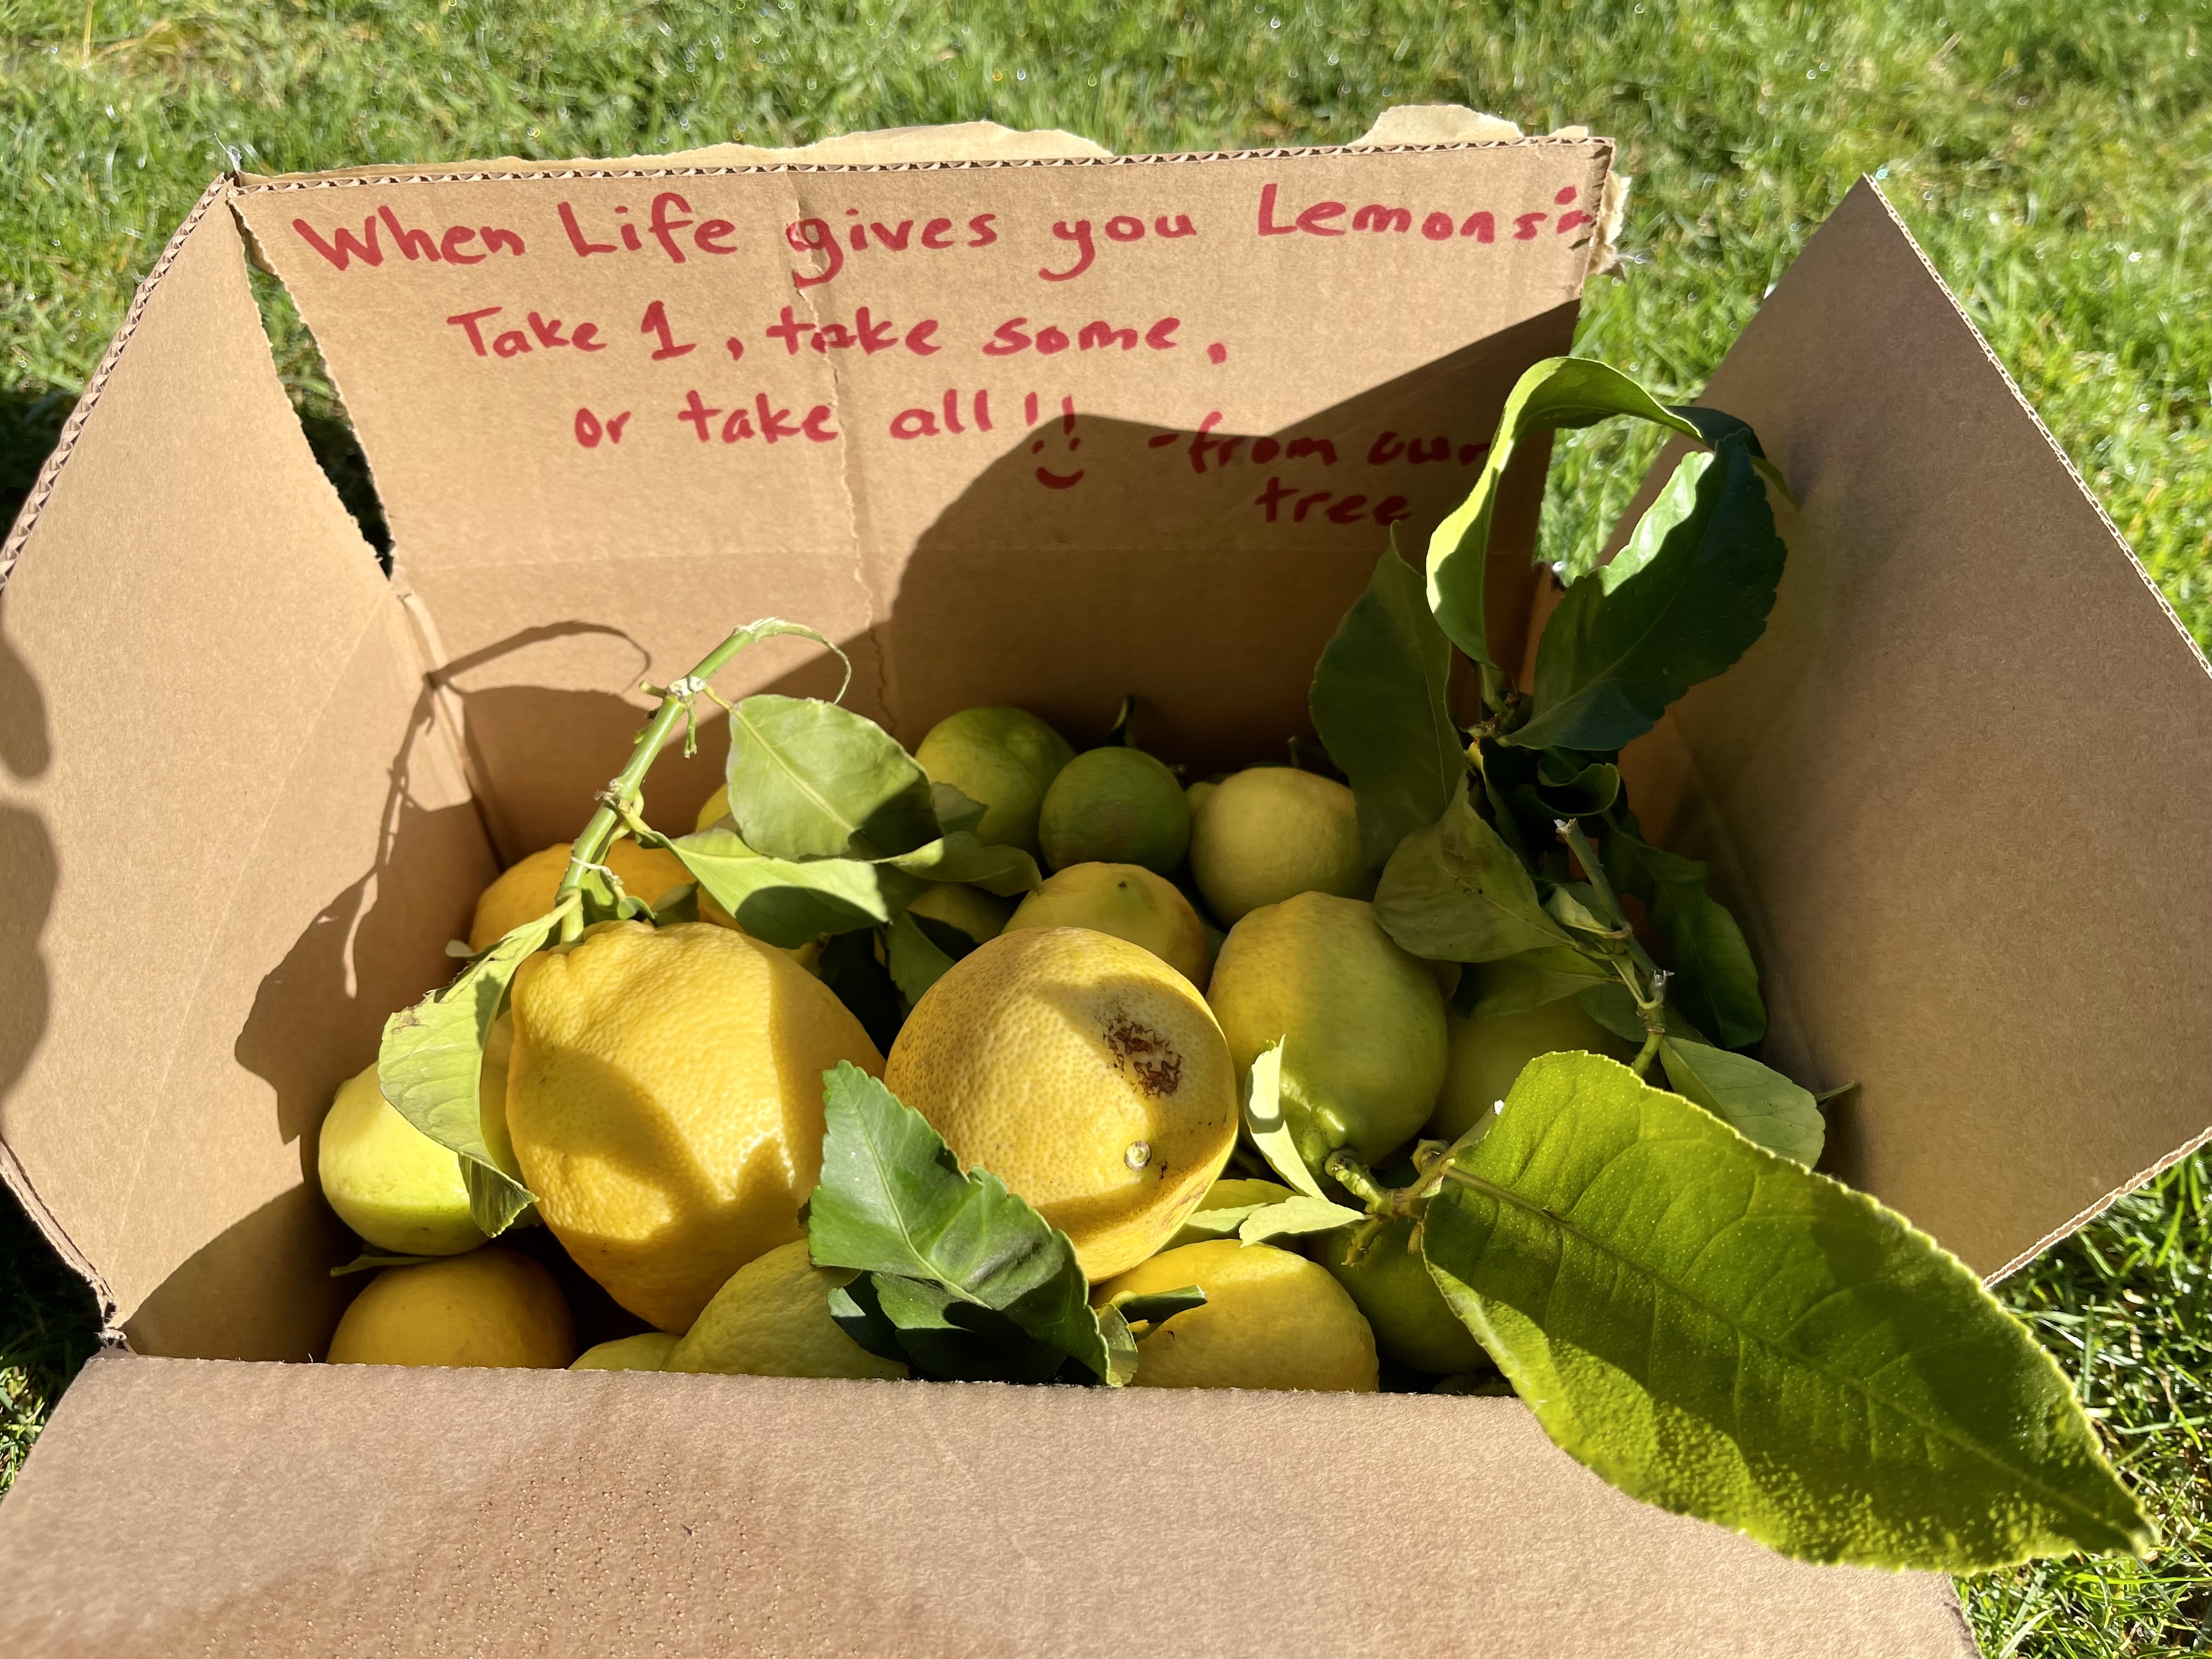 When Life gives you Lemons:
Take 1, take some,
or take all!!
-from our
tree